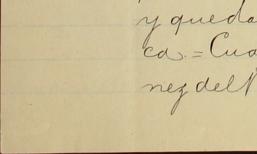 y queda
ca. = Cua
nez del